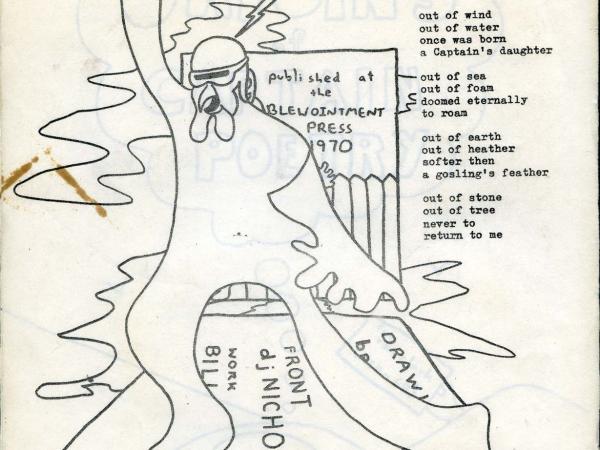 published at
the
BLEWOINTMENT
PRESS
1970
out of wind
out of water
once was born
a Captain's daughter
out of sea
out of foam
doomed eternally
to roam
out of earth
out of heather
softer then
a gosling's feather
out of stone
out of tree
never to
return to me
FRONT
dj NICHO
WORK
BILL
DRAWI